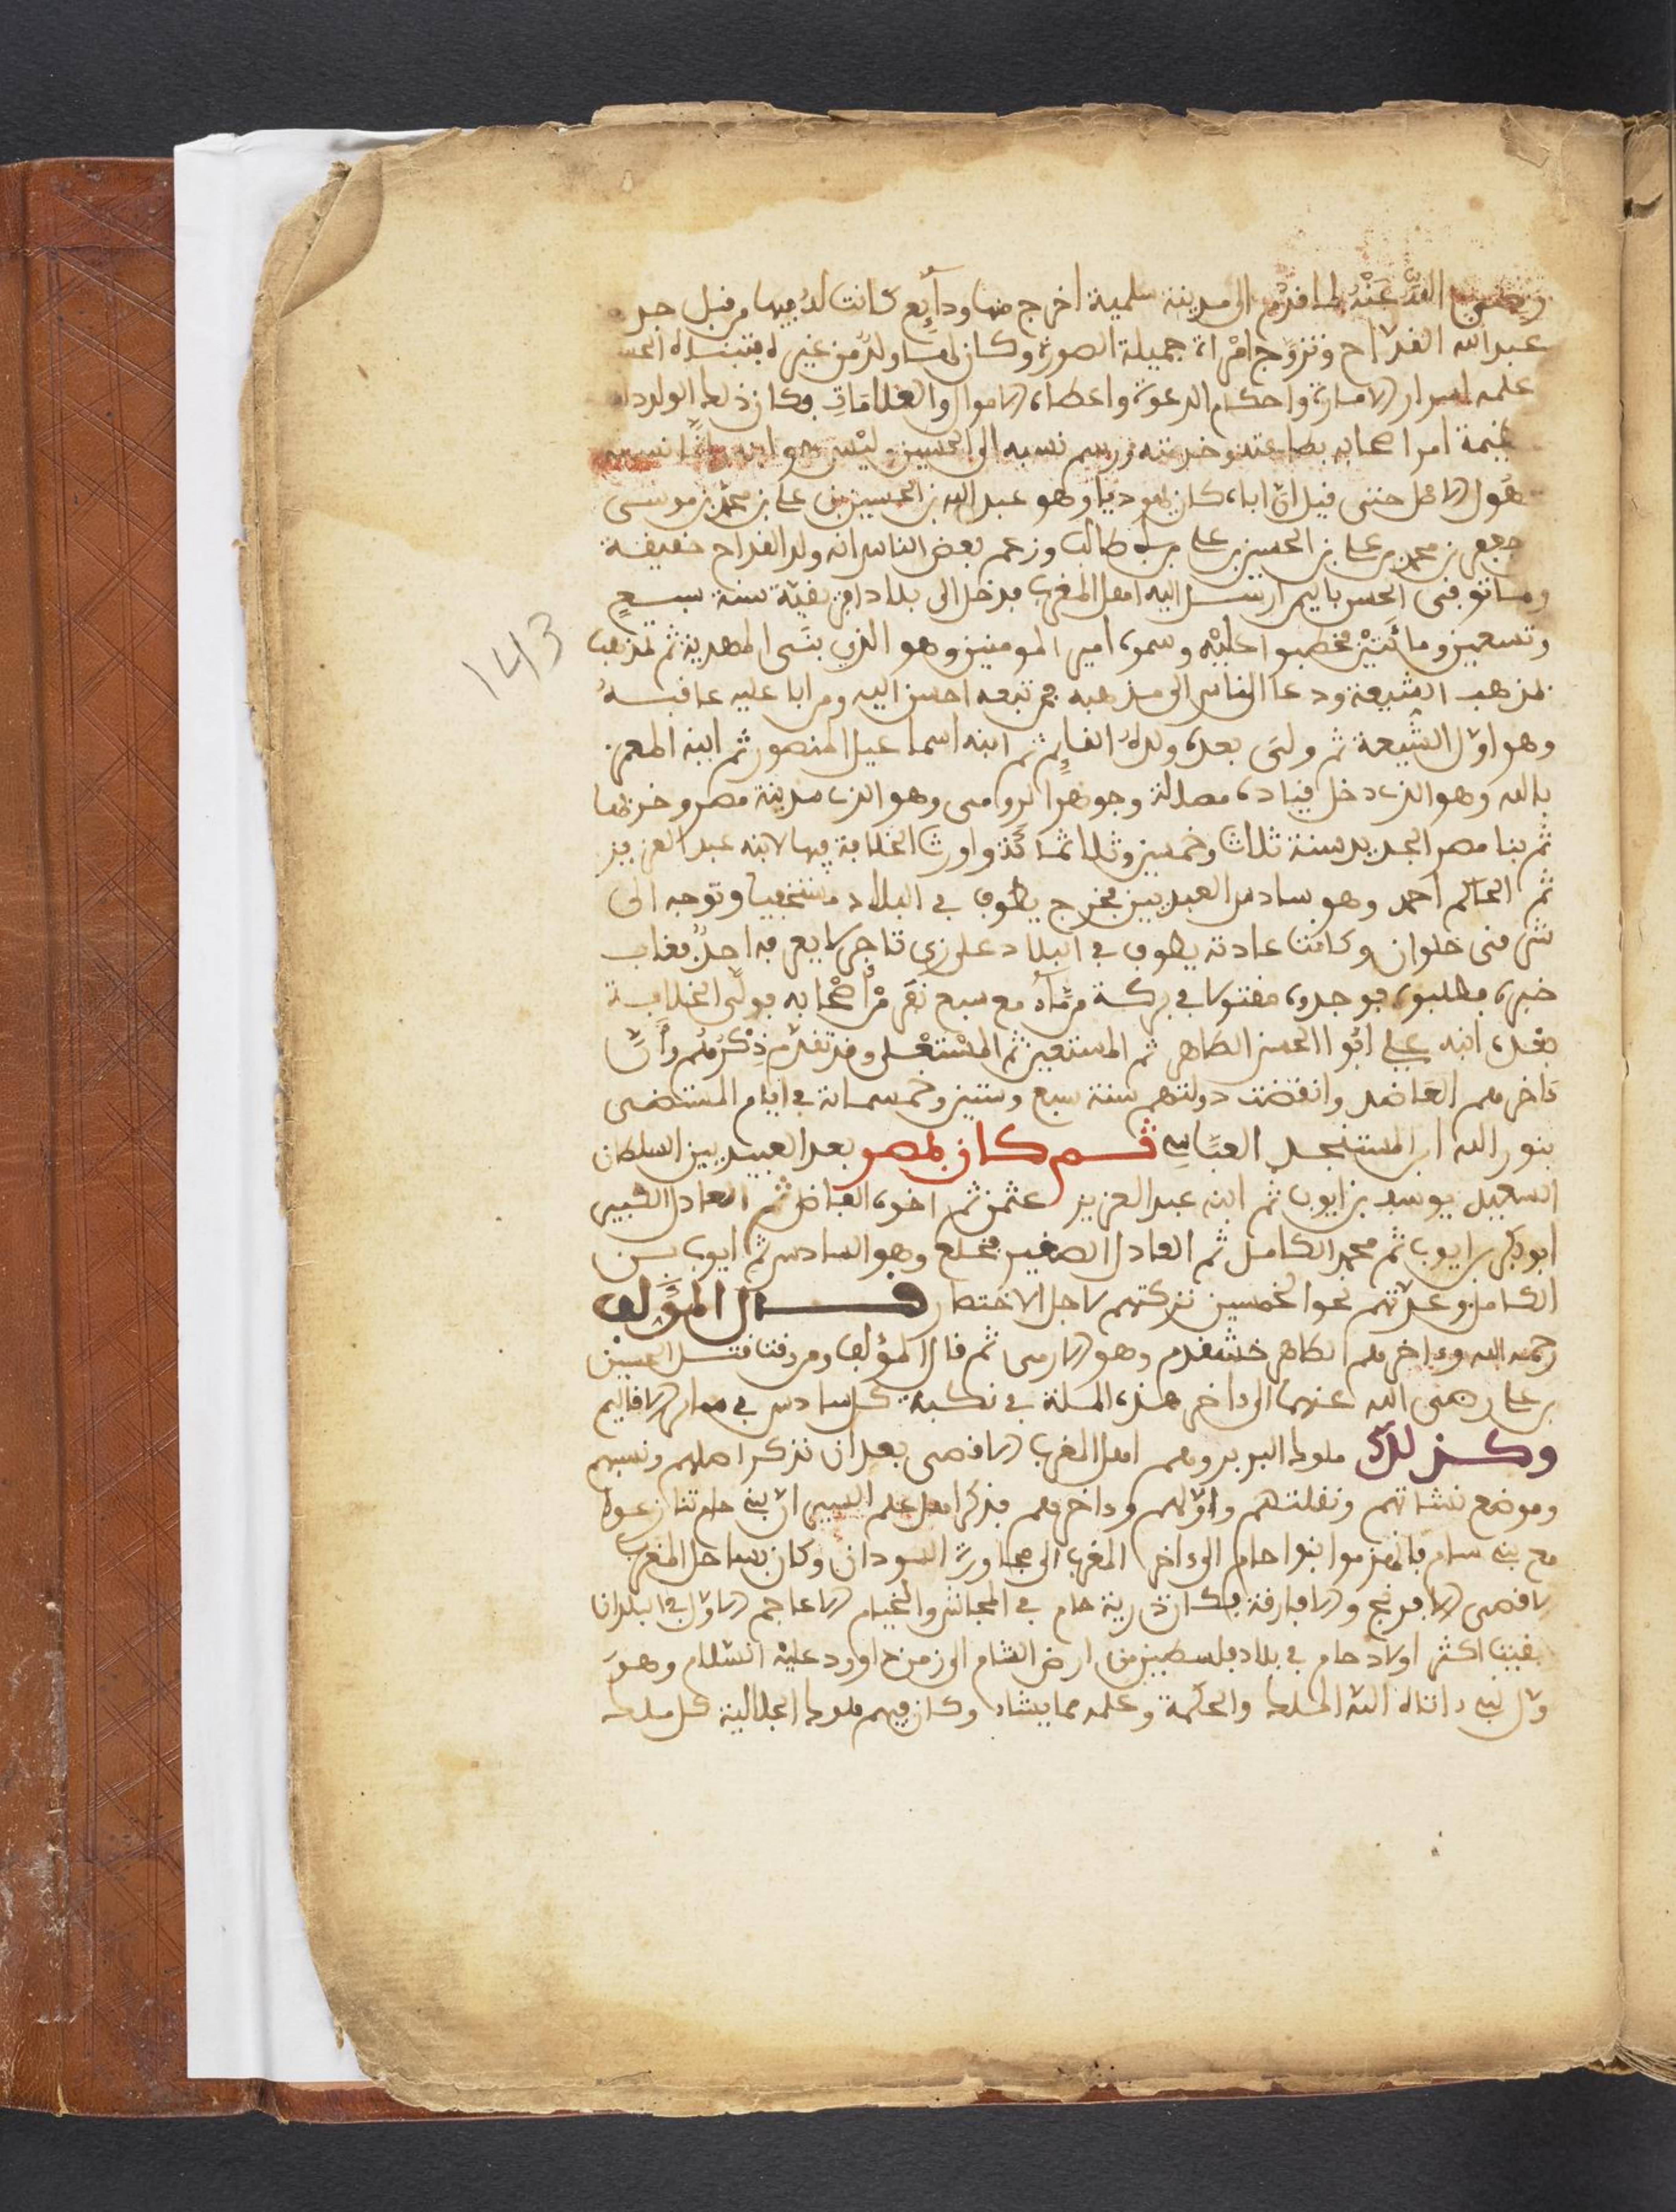 رضي الله عنه لما قدم الى مدينة سلمية اخرج منها ودائع كانت له فيها من قبل جد
عبد الله القداح وتزوج امراة جميلة الصورة وكان لها ولد من غيره فتبناه الحس
علمه اسرار الامارة واحكام الدعوة واعطاه الاموال والعلامات وكان ذلك الولد
امر اصحابه بطاعته وخدمته ورسم نسبه الى الحسين وليس هو ابنه
قيل ان اباه كان يهوديا وهو عبد الله بن الحسين بن علي بن محمد بن موسى
جعفر بن محمد بن علي بن الحسين بن علي بن ابي طالب وزعم بعض الناس انه ولد القداح حقيقة
ومات وفتى الحسن باليم ارسل اليه اهل المغرب فدخل الى بلاد افريقية سنة سبع
وتسعين ومائتين فخطبوا عليه وسموه امير المومنين وهو الذي بنى المهدية ثم تمذهب
بمذهب الشيعة ودعا الناس الى مذهبه فمن تبعه احسن اليه ومن ابا عليه عاقبه
وهو اول الشيعة ثم ولى بعده ولده القايم ثم ابنه اسماعيل المنصور ثم ابنه المعز
بالله وهو الذي دخل وجوهرا الرومى وهو الذي مدينة مصر وخربها
ثم بنا مصر الجديد سنة ثلاث وخمسين وثلاثمائة واورث الخلافة فيها لابنه عبد العزيز
ثم الحاكم احمد وهو سادس العبديين فخرج يطوف في البلاد مستخفيا وتوجه الى
شرقى حلوان وكانت عادته يطوف في البلاد على زي تاجر لا يعرفه احد فغاب
خبره فطلبوه فوجدوه مقتولا في بركة ماء مع سبع نفر من اصحابه فولى الخلافة
بعده ابنه علي ابو الحسن الطاهر ثم المستعين ثم المستعلى وقد تقدم ذكرهم وان
ءاخرهم العاضد وانقضت دولتهم سنة سبع وستين وخمسمائة في ايام المستضى
بنور الله ابن المستنجد العباسي ثم كان بمصر بعد العبيديين السلطان
السعيد يوسف بن ايوب ثم ابنه عبد العزيز عثمن ثم اخوه الفاضل ثم العادل الكبير
ابو بكر بن ايوب ثم محمد الكامل ثم العادل الصغير فخلع وهو السادس ثم ايوب بن
الكامل وعدتهم نحو الخمسين تركتهم لاجل الاختصار قال المؤلف
رحمه الله وءاخرهم الظاهر خشقدم وهو الارمى ثم قال المؤلف ومن وقت قتل الحسين
بن علي رضى الله عنهما الى ءاخر هذه المسلة في نكبة كل سادس في سائر الاقاليم
وكذلك ملوك البربر وهم اهل المغرب الاقصى بعد ان نذكر اصلهم ونسبهم
وموضع نشاتهم ونقلتهم واولهم وءاخرهم فذكر اهل علم السير ان بني حام تنازعوا
مع بني سام فانهزموا بنوا حام الى ءاخر المغرب الى مجاورة السودان وكان بساحل المغرب
الاقصى الافرنج والافارقة فكان ذرية حام في المجاشر والخيام الاعاجم الاول في البلدان
بقيت اكثر اولاد حام في بلاد فلسطين من ارض الشام الى زمن داوود عليه السلام وهو
ءاتاه الله الملك والحكمة وعلمه مما يشاء وكان فيهم ملوك الجالية كل ملك
143